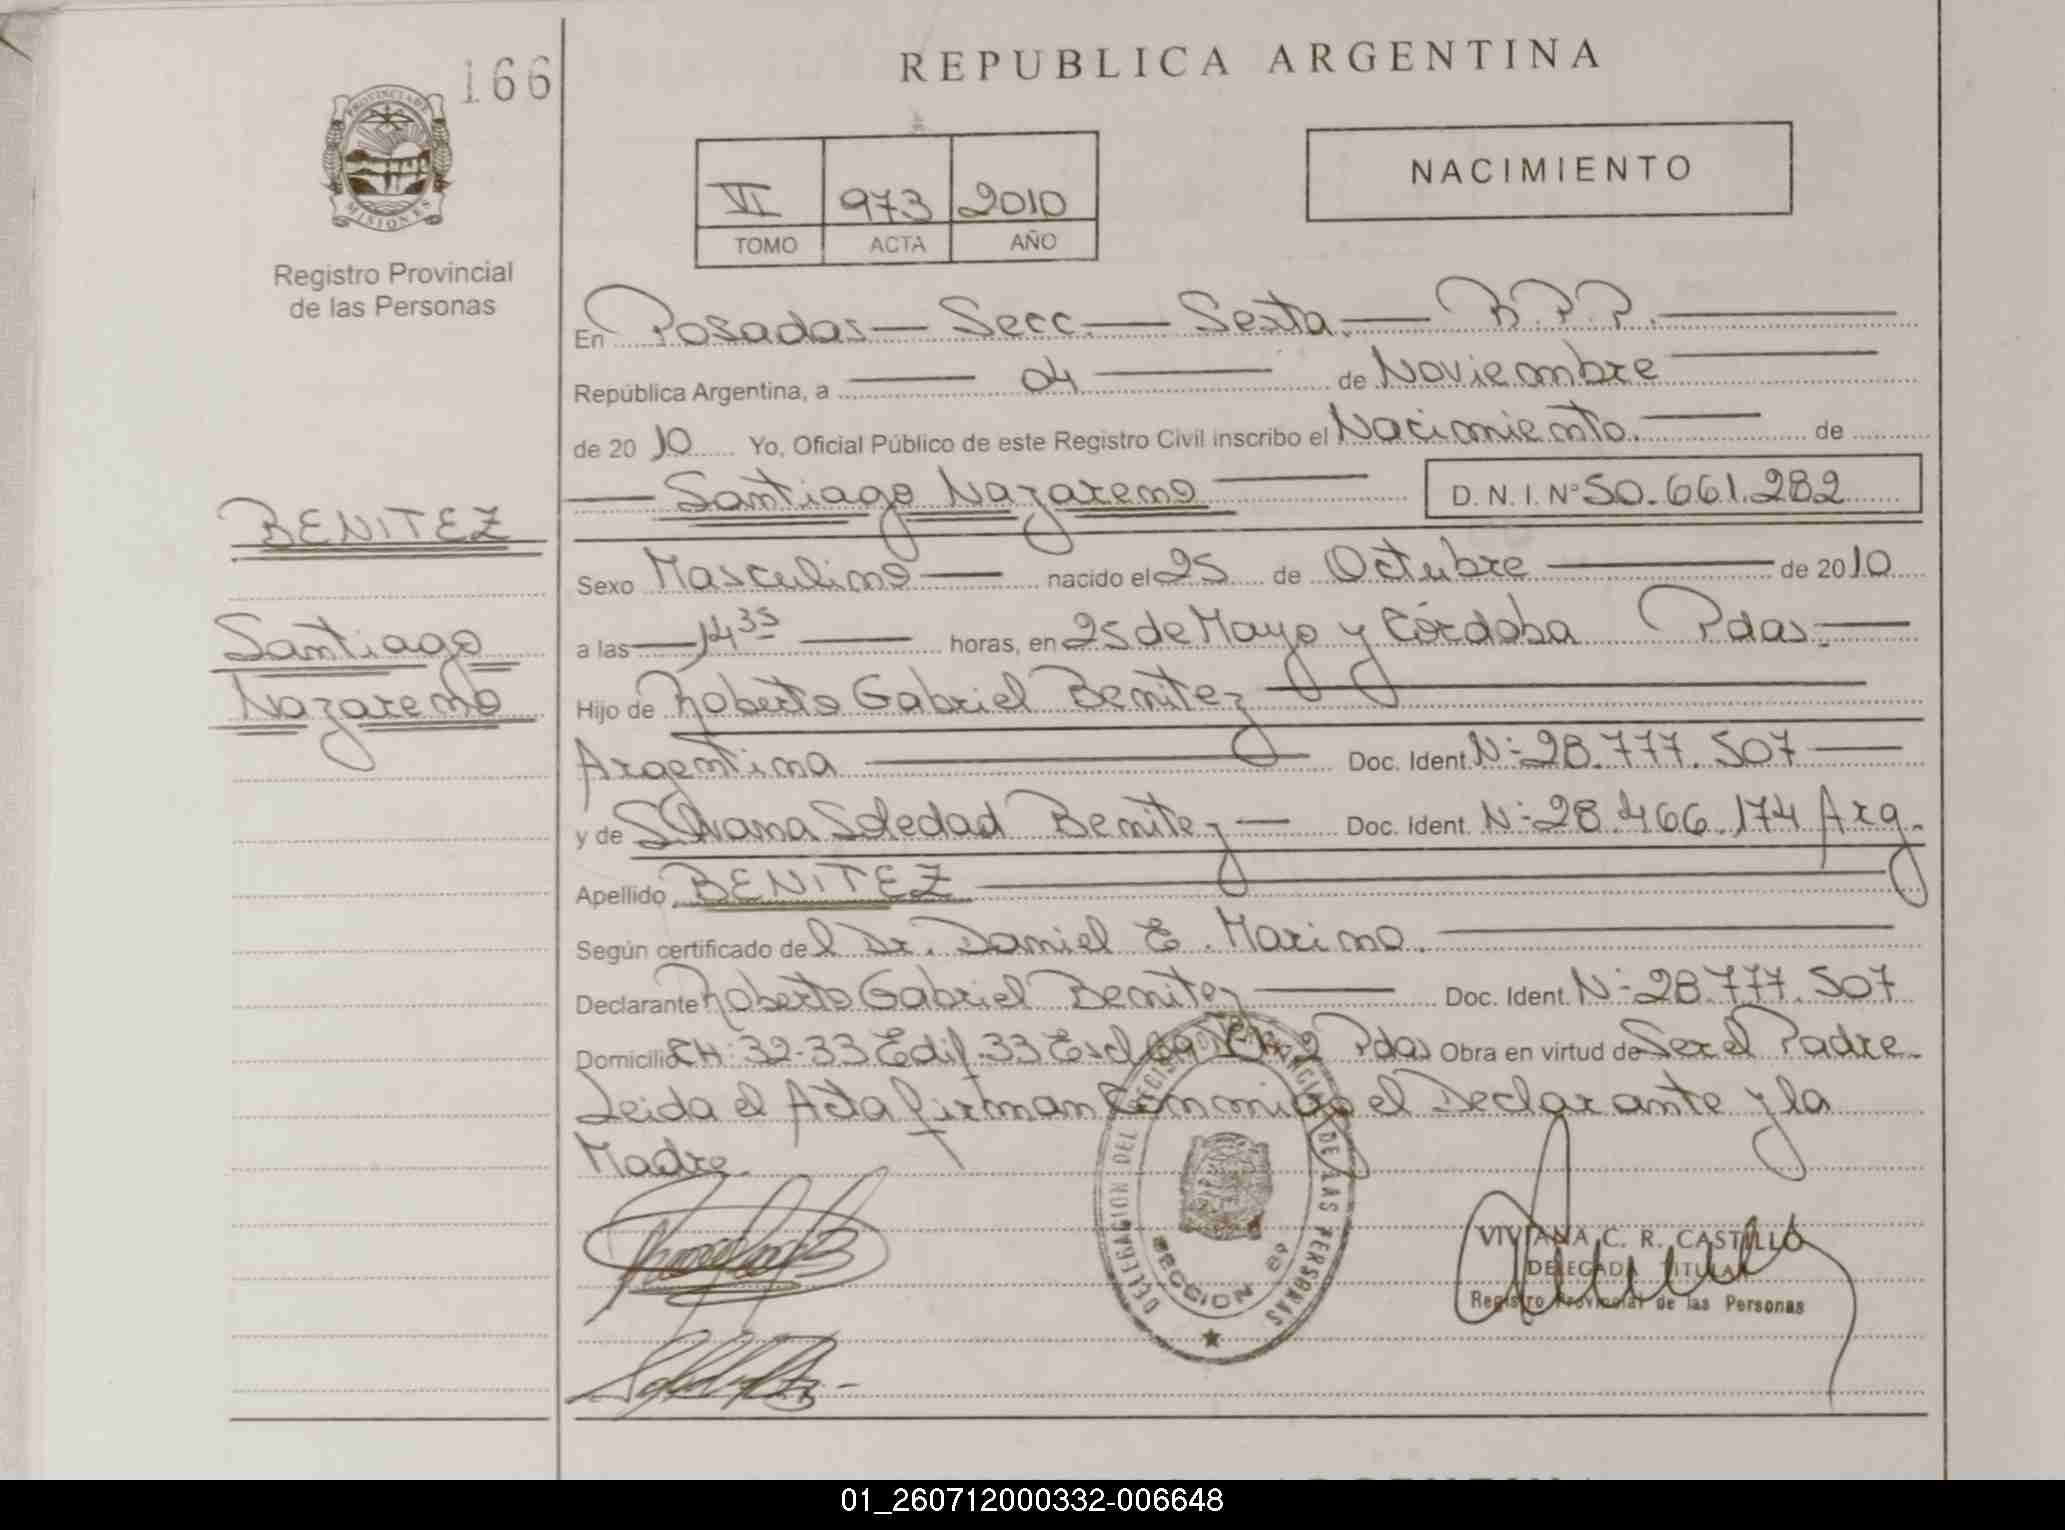 166
REPUBLICA ARGENTINA
PROVINCIA DE
MISIONES
Registro Provincial
de las Personas
VI 973 2010
TOMO ACTA AÑO
NACIMIENTO
En Posadas — Secc. — Sexta. — R.P.P.
República Argentina, a 04 de Noviembre
de 2010 Yo, Oficial Público de este Registro Civil inscribo el Nacimiento. de
Santiago Nazareno D.N.I. Nº 50.661.282
BENITEZ
Santiago
Nazareno
Sexo Masculino nacido el 25 de Octubre de 2010
a las 14 35 horas, en 25 de Mayo y Córdoba Pdas.
Hijo de Roberto Gabriel Benitez
Argentina Doc. Ident. Nº 28.777.507
y de Silvana Soledad Benitez Doc. Ident. Nº 28.466.174 Arg.
Apellido BENITEZ
Según certificado del Dr. Daniel E. Marino.
Declarante Roberto Gabriel Benitez Doc. Ident. Nº 28.777.507
Domicilio CH: 32-33 Edif. 33 Pdas Obra en virtud de Ser el Padre.
Leida el Acta firman Conmigo el Declarante y la
Madre.
DELEGACION DEL REGISTRO PROVINCIAL DE LAS PERSONAS
SECCION 6º
VIVIANA C. R. CASTILLO
DELEGADA TITULAR
Registro Provincial de las Personas
01_260712000332-006648